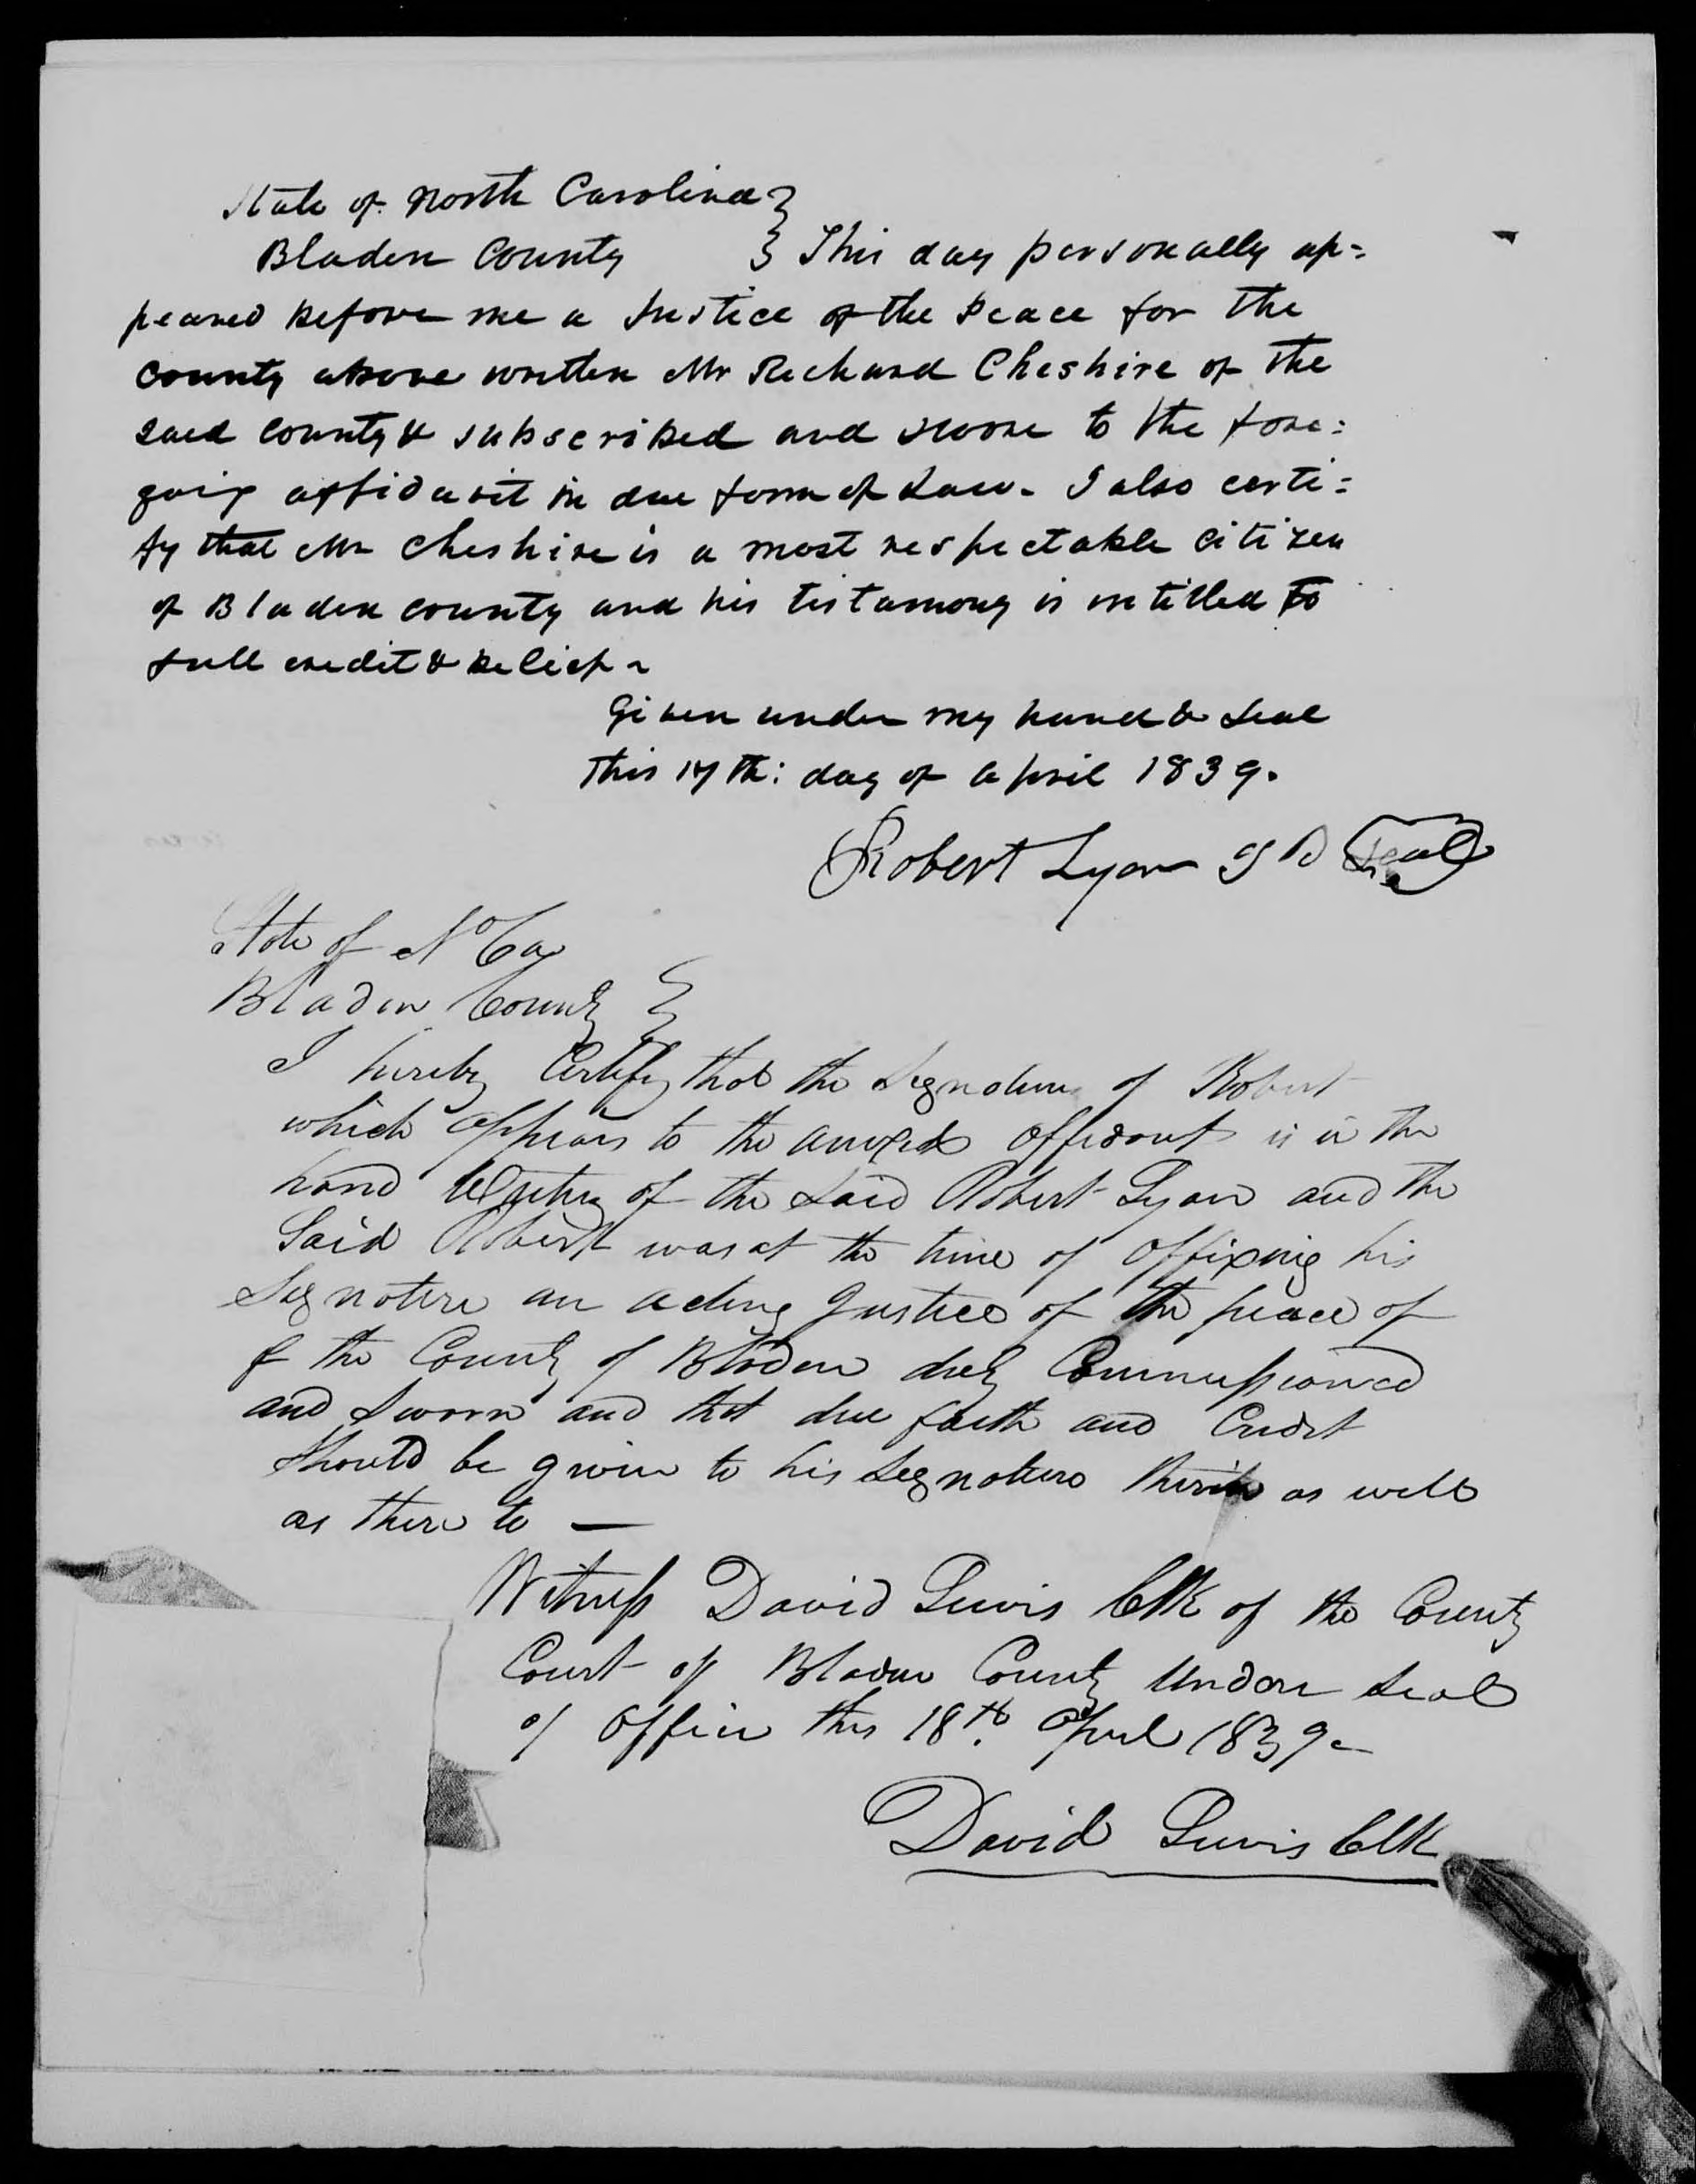 State of North Carolina }
Bladen County } This day personally ap=
peared before me a Justice of the Peace for the
county above written Mr Richard Cheshire of the
said county & subscribed and swore to the fore=
going affidavit in due form of Law. I also certi=
fy that Mr Cheshire is a most respectable citizen
of Bladen county and his testamony is intitled to
full credit & belief ~
Given under my hand & seal
This 17th: day of April 1839.
Robert Lyon JP Seal
State of No Ca
Bladen County }
I hereby Certify that the Signature of Robert
which appears to the annexed affidavit is in the
hand Writing of the said Robert Lyon and the
Said Robert was at the time of affixing his
Signature an acting Justice of the peace of
& the County of Bladen duly Commissioned
and Sworn and that due faith and Credit
should be given to his Signature therein as well
as there to —
Witness David Lewis Clk of the County
Court of Bladen County Under Seal
of office this 18th. April 1839 –
David Lewis Clk